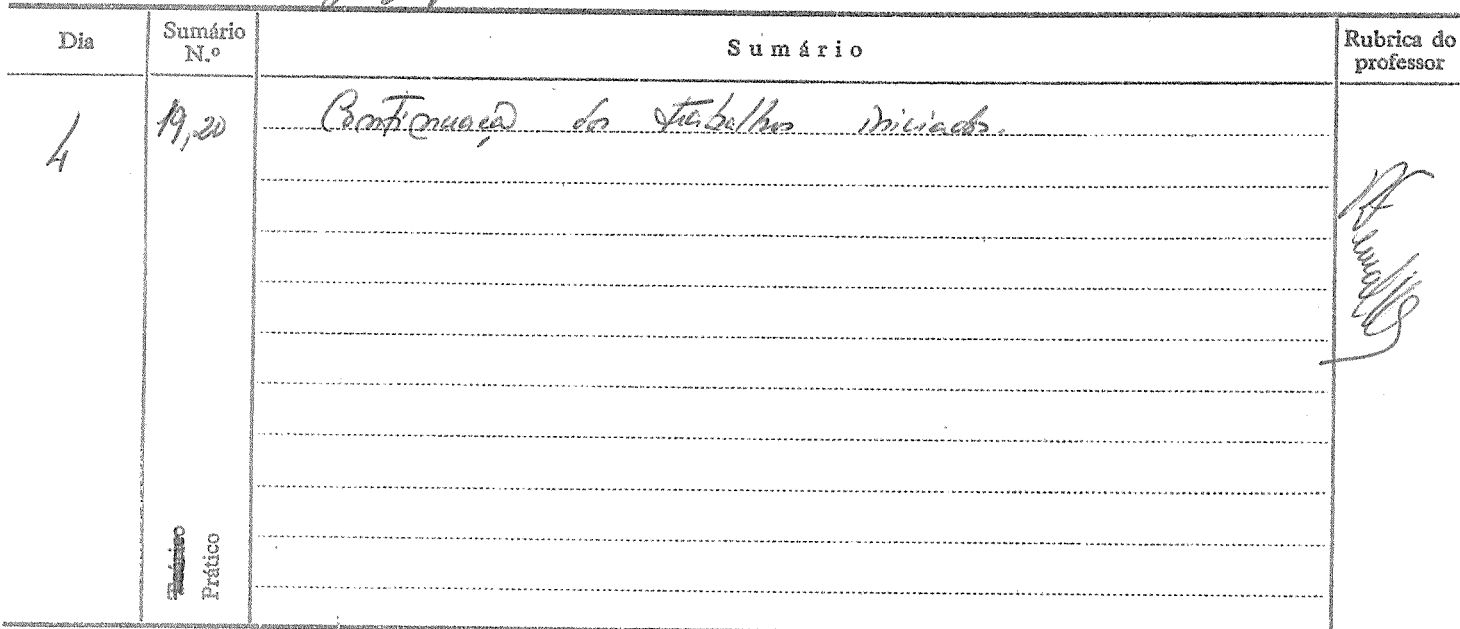 Dia
Sumário N.º
Sumário
Rubrica do professor
4
19,20
Continuação dos trabalhos iniciados.
Prático